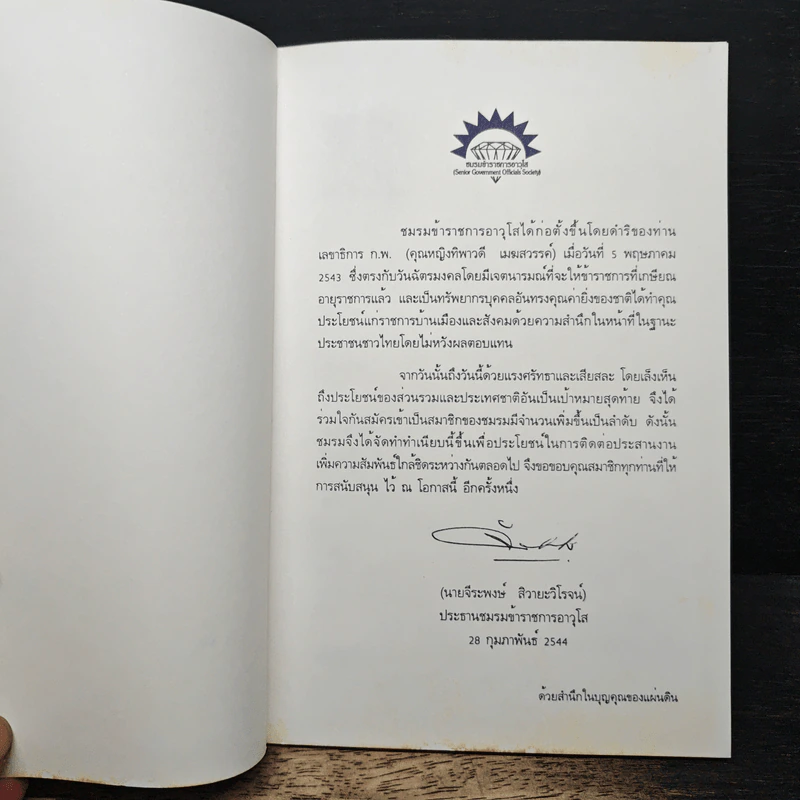 ชมรมข้าราชการอาวุโส
(Senior Government Officials Society)
ชมรมข้าราชการอาวุโสได้ก่อตั้งขึ้นโดยดำริของท่าน
เลขาธิการ ก.พ. (คุณหญิงทิพาวดี เมฆสวรรค์) เมื่อวันที่ 5 พฤษภาคม
2543 ซึ่งตรงกับวันฉัตรมงคลโดยมีเจตนารมณ์ที่จะให้ข้าราชการที่เกษียณ
อายุราชการแล้ว และเป็นทรัพยากรบุคคลอันทรงคุณค่ายิ่งของชาติได้ทำคุณ
ประโยชน์แก่ราชการบ้านเมืองและสังคมด้วยความสำนึกในหน้าที่ในฐานะ
ประชาชนชาวไทยโดยไม่หวังผลตอบแทน
จากวันนั้นถึงวันนี้ด้วยแรงศรัทธาและเสียสละ โดยเล็งเห็น
ถึงประโยชน์ของส่วนรวมและประเทศชาติอันเป็นเป้าหมายสุดท้าย จึงได้
ร่วมใจกันสมัครเข้าเป็นสมาชิกของชมรมมีจำนวนเพิ่มขึ้นเป็นลำดับ ดังนั้น
ชมรมจึงได้จัดทำทำเนียบนี้ขึ้นเพื่อประโยชน์ในการติดต่อประสานงาน
เพิ่มความสัมพันธ์ใกล้ชิดระหว่างกันตลอดไป จึงขอขอบคุณสมาชิกทุกท่านที่ให้
การสนับสนุน ไว้ ณ โอกาสนี้ อีกครั้งหนึ่ง
(นายจีระพงษ์ สิวายะวิโรจน์)
ประธานชมรมข้าราชการอาวุโส
28 กุมภาพันธ์ 2544
ด้วยสำนึกในบุญคุณของแผ่นดิน